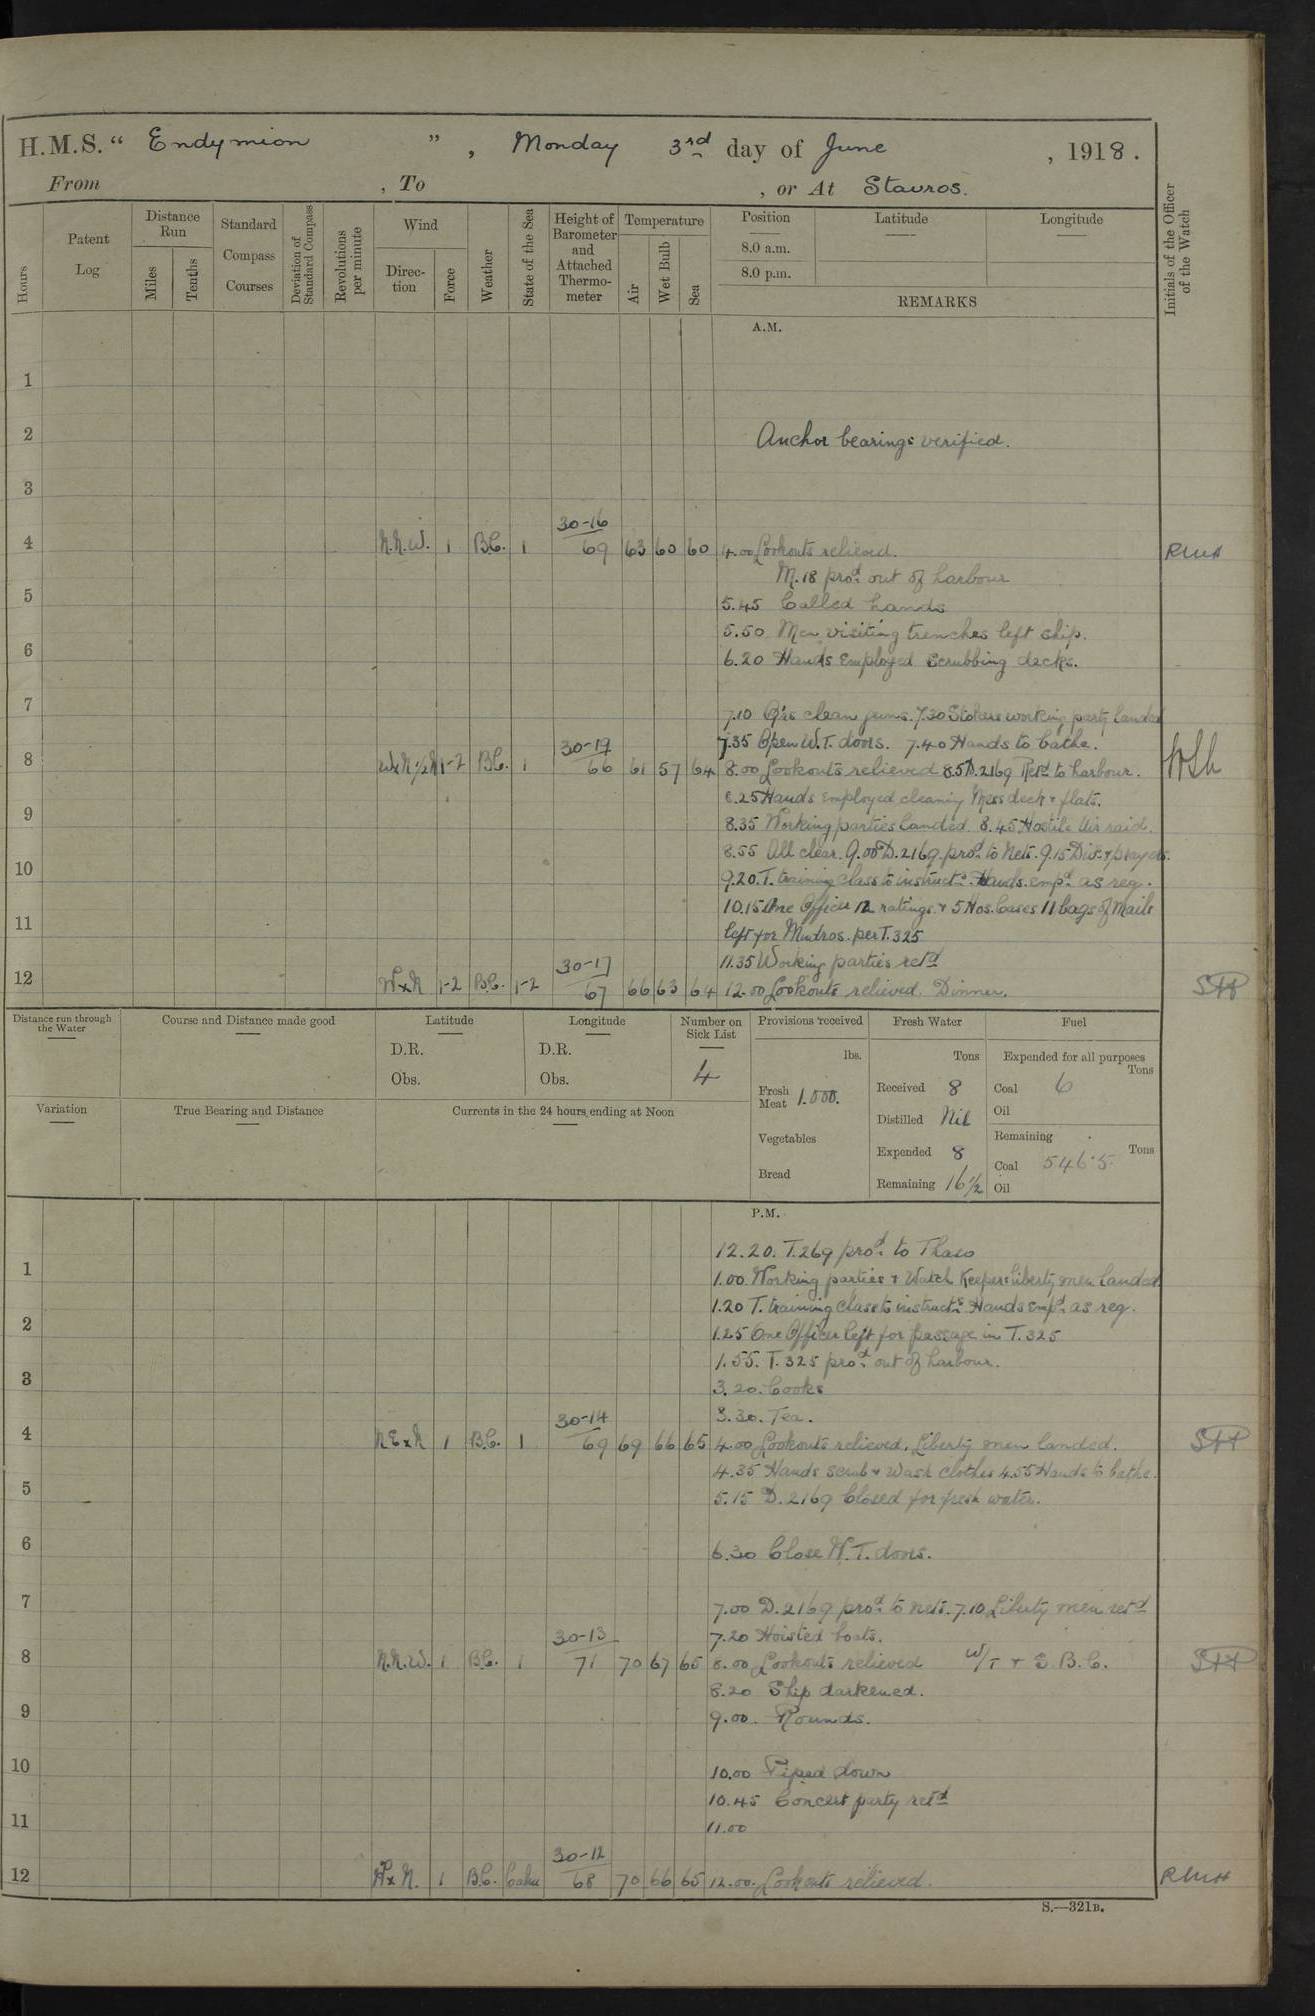 H.M.S. " Endymion ", Monday 3rd day of June, 1918.
From , To , or At Stavros.
Hours
Patent Log
Distance Run
Miles
Tenths
Standard Compass Courses
Deviation of Standard Compass
Revolutions per minute
Wind
Direction
Force
Weather
State of the Sea
Height of Barometer and Attached Thermometer
Temperature
Air
Wet Bulb
Sea
Position
8.0 a.m.
8.0 p.m.
Latitude
Longitude
REMARKS
Initials of the Officer of the Watch
A.M.
1
2 Anchor bearings verified.
3
30-16
4 N.N.W. 1 B.C. 1 69 63 60 60 4.00 Lookouts relieved. RWH
M.18 prod. out of harbour
5 5.45 Called hands
5.50 Men visiting trenches left ship.
6 6.20 Hands Employed Scrubbing decks.
7 7.10 Qrs clean guns. 7.30 Stokers working party landed
30-17 7.35 Open W.T. doors. 7.40 Hands to bathe.
8 WxN½N 1-2 B.C. 1 66 61 57 64 8.00 Lookouts relieved 8.5 D.2169 Retd. to harbour.
8.25 Hands employed cleaning Mess deck & flats.
9 8.35 Working parties landed. 8.45 Hostile Air raid.
8.55 All clear. 9.00 D.2169. prod. to Nets. 9.15 Div. & prayers.
10 9.20. T. training class to instructn. Hands. empd. as req.
10.15 One Officer 12 ratings & 5 Hos. Cases 11 bags of Mails
11 left for Mudros. per T.325
30-17 11.35 Working parties retd
12 WxN 1-2 B.C. 1-2 67 66 63 64 12.00 Lookouts relieved. Dinner.
Distance run through the Water
Course and Distance made good
Latitude
D.R.
Obs.
Longitude
D.R.
Obs.
Number on Sick List
4
Provisions received
lbs.
Fresh Meat 1.000.
Vegetables
Bread
Fresh Water
Tons
Received 8
Distilled Nil
Expended 8
Remaining 16½
Fuel
Expended for all purposes
Tons
Coal 6
Oil
Remaining
Tons
Coal 546.5
Oil
Variation
True Bearing and Distance
Currents in the 24 hours, ending at Noon
P.M.
12.20. T.269 prod. to Thaso
1 1.00 Working parties & Watch Keepers liberty men landed
1.20 T. training class to instructn. Hands empd. as req.
2 1.25 One Officer left for passage in T.325
1.55. T.325 prod. out of harbour.
3 3.20. Cooks
30-14 3.30. Tea.
4 NExN 1 B.C. 1 69 69 66 65 4.00 Lookouts relieved. Liberty men landed.
4.35 Hands Scrub & Wash clothes 4.55 Hands to bathe.
5 5.15 D.2169 Closed for fresh water.
6 6.30 Close W.T. doors.
7 7.00 D.2169 prod. to nets. 7.10 Liberty men retd
30-13 7.20 Hoisted boats.
8 N.N.W. 1 B.C. 1 71 70 67 65 8.00 Lookouts relieved W/T & S.B.C.
8.20 Ship darkened.
9 9.00. Rounds.
10 10.00 Piped down
10.45 Concert party retd
11 11.00
30-12
12 WxN. 1 B.C. Calm 68 70 66 65 12.00. Lookouts relieved. RWH
S.—321B.